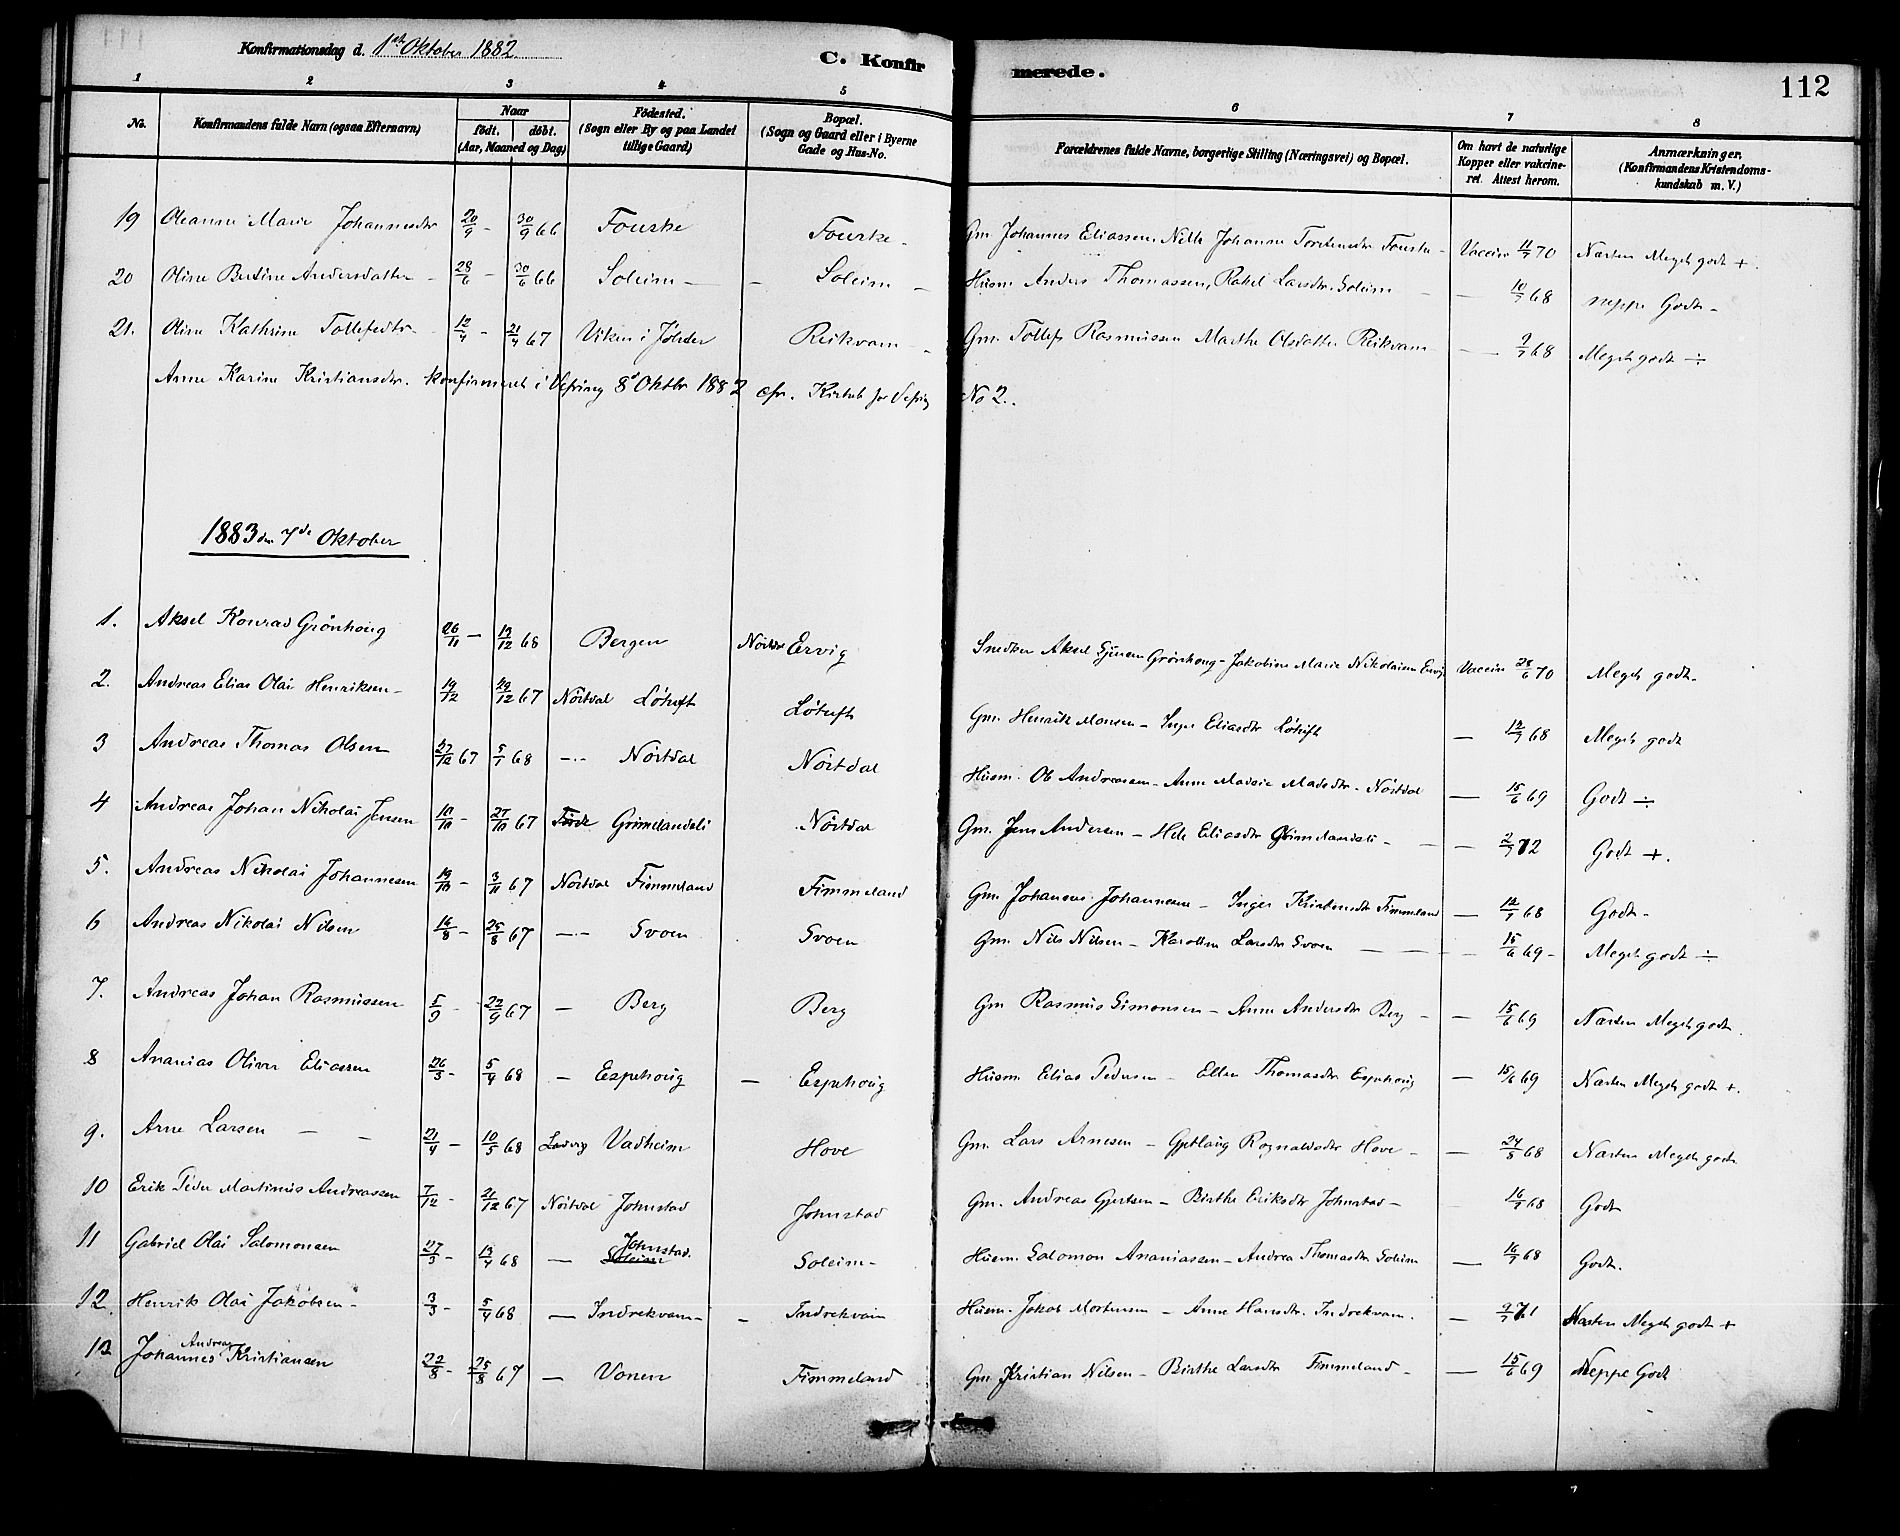 Konfirmationsdag d. 1ste Oktober 1882
C. Konfirmerede.
112
1 2 3 4 5 6 7 8
No.
Konfirmandens fulde Navn (ogsaa Efternavn)
Naar
født. døbt.
(Aar, Maaned og Dag)
Fødested.
(Sogn eller By og paa Landet
tillige Gaard)
Bopæl.
(Sogn og Gaard eller i Byerne
Gade og Hus-No.
Forældrenes fulde Navne, borgerlige Stilling (Næringsvei) og Bopæl.
Om havt de naturlige
Kopper eller vakcine-
ret. Attest herom.
Anmærkninger,
(Konfirmandens Kristendoms-
kundskab m. V.)
19 Oleanna Marie Johannesdtr 20/9 - 30/9 66 Fourske Fourske - Gm. Johannes Eliassen, Nille Johanne Torstensdtr Fourske - Vaccin 4/7 70 Næsten Meget godt +.
20 Oline Bertine Andersdatter - 28/6 - 30/6 66 Soleim - - Soleim - Husm Anders Thomassen, Rakel Larsdtr. Soleim - - 10/7 68 neppe Godt -
21. Oline Kathrine Tollefsdtr - 12/4 - 21/4 67 Viken i Jølster Reikvam - Gm. Tollef Rasmussen Marthe Olsdatter Reikvam - 9/7 68 Meget godt ÷
Anne Karine Kristiansdtr. konfirmeret i Vefring 8d Oktbr 1882 cfr. Kirkeb for Vefring No 2.
1883 den 7de Oktober
1. Aksel Konrad Grönhoug 26/11 - 13/12 68 Bergen Nörtdal Ervig Snedker Aksel Gjørsen Grönhoug - Jakobine Marie Nikolaisen Ervig Vaccin 28/6 70 Meget godt -
2. Andreas Elias Olai Henriksen - 19/12 29/12 67 Nörtdal Løtuft Løtuft Gm. Henrik Monsen - Inger Eliasdtr Løtuft - 12/7 68 Meget godt
3 Andreas Thomas Olsen 27/12 67 5/1 68 -"- Nörtdal Nörtdal Husm. Ole Andreassen - Anne Madsdtr. Nörtdal - 15/6 69 Godt ÷
4 Andreas Johan Nikolai Jensen 10/10 - 27/10 67 Förde Grimelandsli Nörtdal Gm. Jens Andersen - Helle Eliasdtr Grimelandsli - - 2/7 72 Godt +.
5. Andreas Nikolai Johannesen 19/10 - 3/11 67 Nörtdal Fimmeland Fimmeland Gm. Johannes Johannesen - Inger Kristensdtr Fimmeland - 12/7 68 Godt -
6 Andreas Nikolai Nilsen 16/8 - 25/8 67 -"- Svoen Svoen Gm. Nils Nilsen - Karoline Larsdtr Svoen - - - 15/6 69 - Meget godt ÷
7. Andreas Johan Rasmussen 5/9 - 22/9 67 - Berg Berg Gm Rasmus Simonsen - Anne Andersdtr Berg - - 15/6 69 Næsten Meget godt.
8 Ananias Oliver Eliassen 26/3 - 5/4 68 - Espehoug - Espehoug Husm Elias Pedersen - Ellen Thomasdtr Espehoug - 15/6 69 Næsten Meget godt +.
9. Arne Larsen - - 21/4 - 10/5 68 Ladvig Vadheim Hove Gm. Lars Arnesen - Gjetlaug Rognaldsdtr Hove - - 24/8 68 Næsten Meget godt
10 Erik Peder Martinus Andreassen 7/12 - 21/12 67 Nörtdal Johnstad Johnstad Gm. Andreas Gjertsen - Birthe Eriksdtr Johnstad - 16/7 68 Godt
11 Gabriel Olai Salomonsen 27/3 - 13/4 68 - Soleim Johnstad. Soleim - Husm. Salomon Ananiassen - Andrea Thomasdtr Soleim - 16/7 68 Godt.
12. Henrik Olai Jakobsen - 3/3 - 5/4 68 - Indrekvam - - Indrekvam Husm. Jakob Mortensen - Anne Hansdtr. Indrekvam. - 9/7 71 Næsten Meget godt +
13 Johannes Andreas Kristiansen 22/8 - 25/8 67 - Vonen Fimmeland Gm Kristian Nilsen - Birthe Larsdtr Fimmeland - - 15/6 69 Neppe Godt